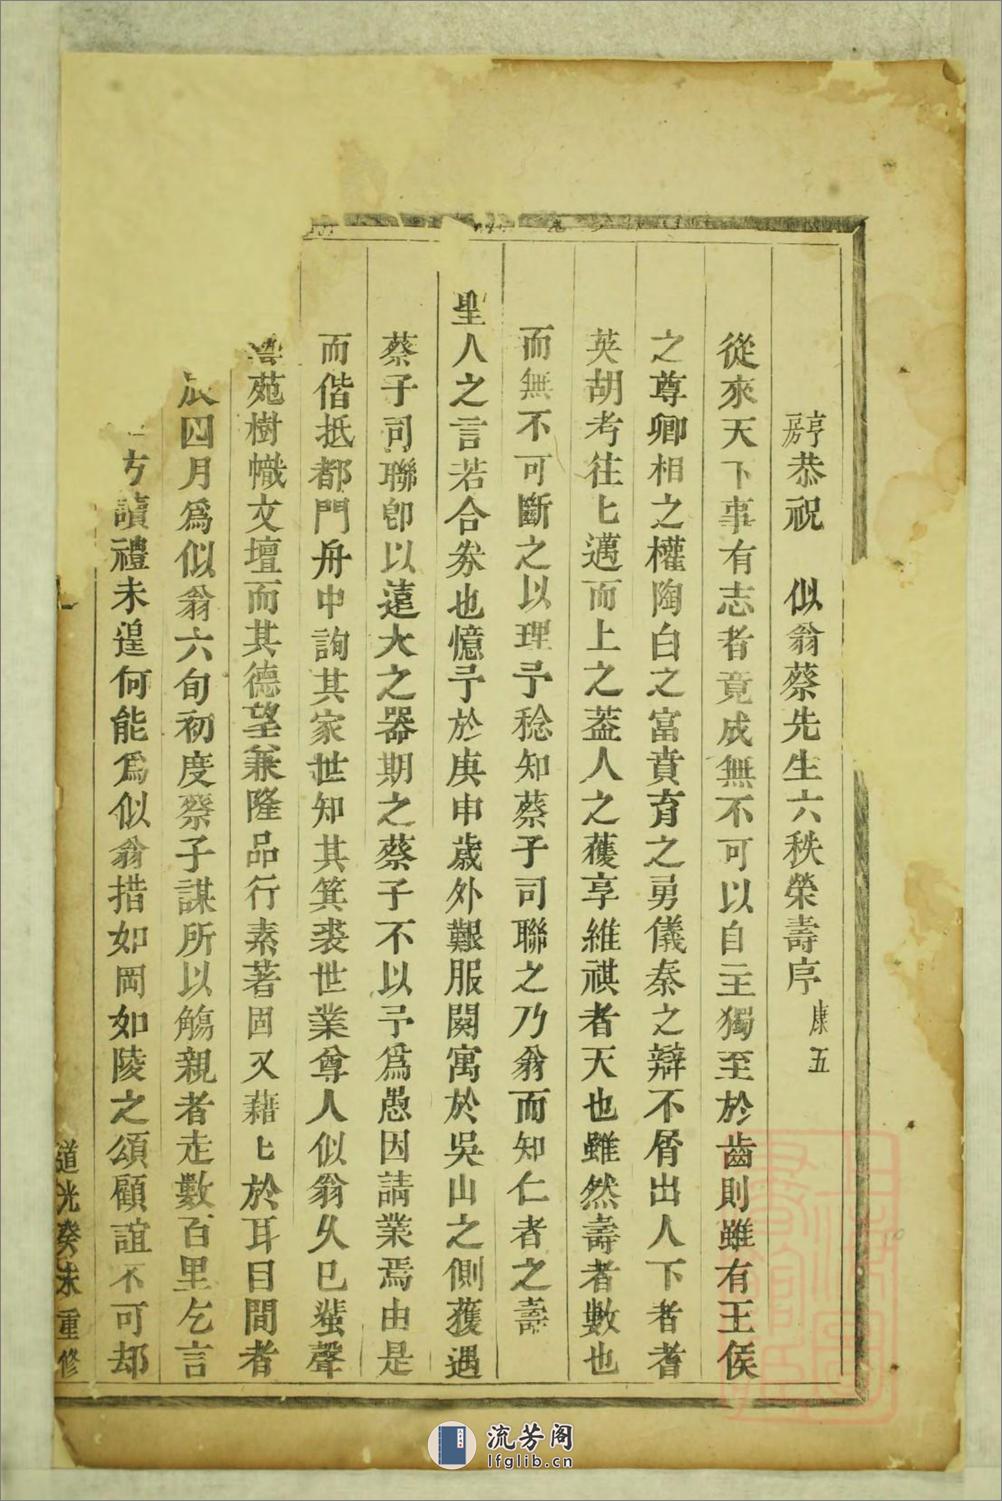 序房恭祝 似翁蔡先生六秩榮壽序 康五
從來天下事有志者竟成無不可以自主獨至於齒則雖有王侯
之尊卿相之權陶白之富賁育之勇儀秦之辯不屑出人下者耆
英胡考往匕邁而上之葢人之獲享維祺者天也雖然壽者數也
而無不可斷之以理予稔知蔡子司聯之乃翁而知仁者之壽
聖人之言若合券也憶予於庚申歲外艱服闋寓於吳山之側獲遇
蔡子司聯卽以遠大之器期之蔡子不以予為愚因請業焉由是
而偕抵都門舟中詢其家世知其箕裘世業尊人似翁久已蜚聲
苑樹幟文壇而其德望兼隆品行素著固又藉匕於耳目間者
辰四月為似翁六旬初度蔡子謀所以觴親者走數百里乞言
方讀禮未遑何能為似翁措如岡如陵之頌顧誼不可却
道光癸未重修
流芳阁
lfglib.cn